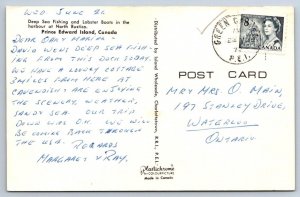 WED JUNE 21
Deep Sea Fishing and Lobster Boats in the
harbour at North Rustico.
Prince Edward Island, Canada
DEAR MARIA
DAVID WENT DEEP SEA FISH-
ING FROM THIS DOCK TODAY.
WE HAVE A LOVELY COTTAGE
5 MILES FROM HERE AT
CAVENDISH. ARE ENJOYING
THE SCENERY, WEATHER,
SANDY SEA. OUR TRIP
DOWN WAS O.K. WE WILL
BE COMING BACK THROUGH
THE U.S.A.
REGARDS
MARGARET & RAY.
Plastichrome
Made in Canada
GREEN
P.E.I.
8
POST CARD
MR & MRS. O. MAIN,
197 STANLEY DRIVE,
WATERLOO
ONTARIO